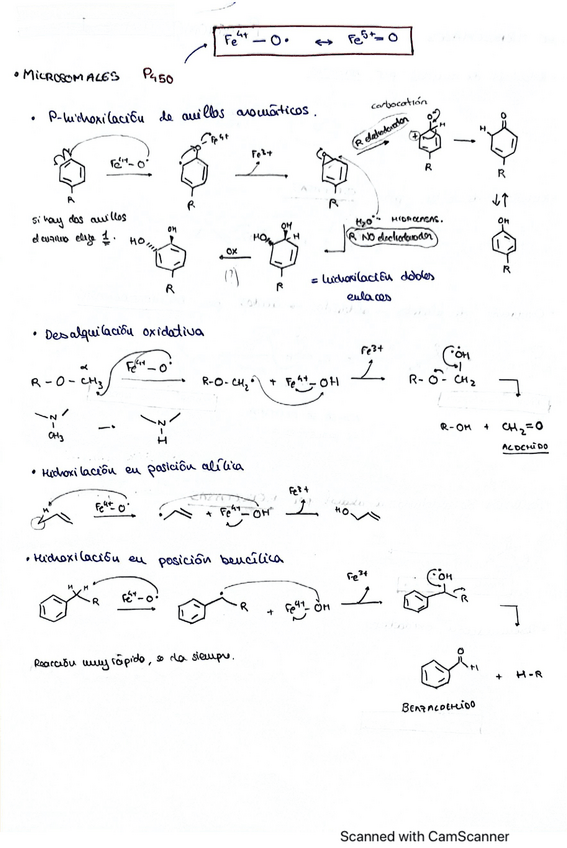 Fe⁴⁺ — O• ↔ Fe⁵⁺=O
• MICROSOMALES P450
• P-hidroxilación de anillos aromáticos.
carbocatión
R electrodonador
Fe⁴⁺—O•
O—Fe⁴⁺
Fe³⁺
R
R
R
O H
H O
R
R
si hay dos anillos
el cuarno elige 1.
HO OH
R
OX
(?)
HO OH H
R
H₂O HIDROLASAS.
R NO electrodonador
= hidroxilación dobles
enlaces
OH
R
• Desalquilación oxidativa
R – O – CH₃
α
Fe⁴⁺—O•
R-O-CH₂• + Fe⁴⁺—OH
Fe³⁺
R-O-CH₂
ÖH
N
CH₃
N
H
R-OH + CH₂=O
ALDEHIDO
• Hidroxilación en posición alílica
H
Fe⁴⁺-O•
+ Fe⁴⁺—OH
Fe³⁺
HO
• Hidroxilación en posición bencílica
H H
R
Fe⁴⁺-O•
R
+ Fe⁴⁺-OH
Fe³⁺
ÖH
R
Reacción muy rápido, se da siempre.
O
H
+ H-R
BENZALDEHIDO
Scanned with CamScanner